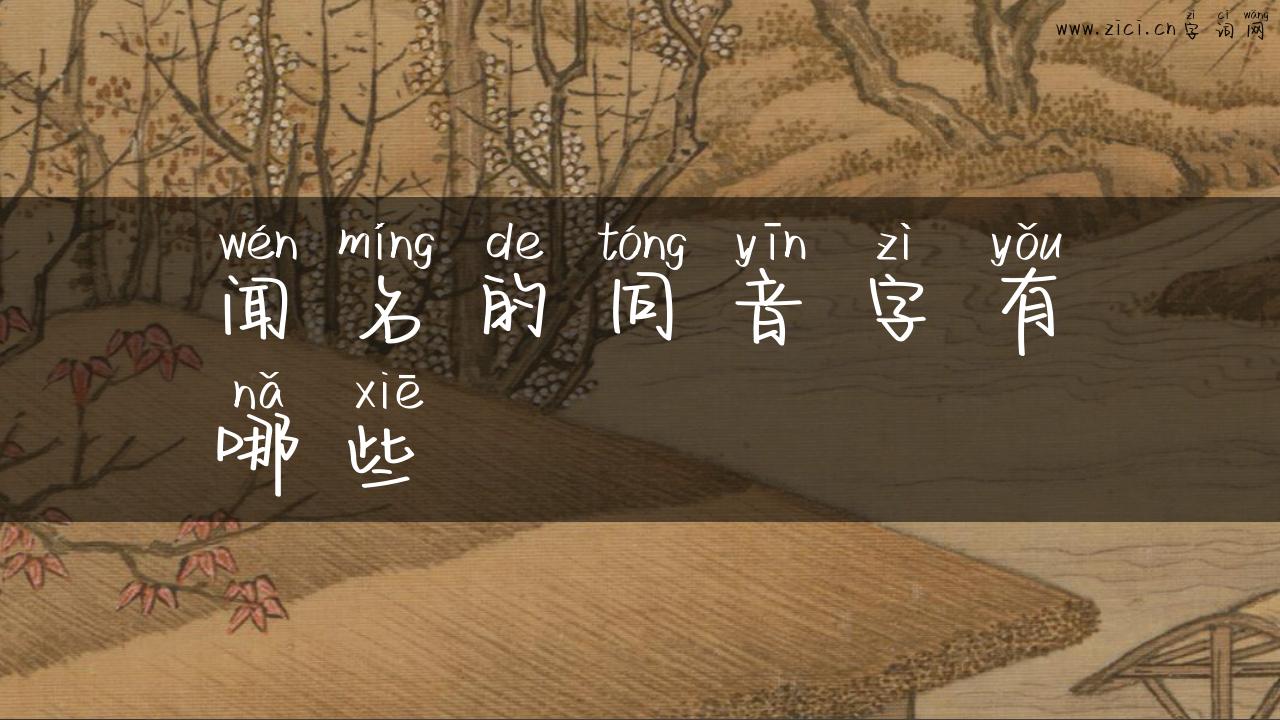 zì cí wǎng
www.zici.cn字词网
wén míng de tóng yīn zì yǒu
闻名的同音字有
nǎ xiē
哪些